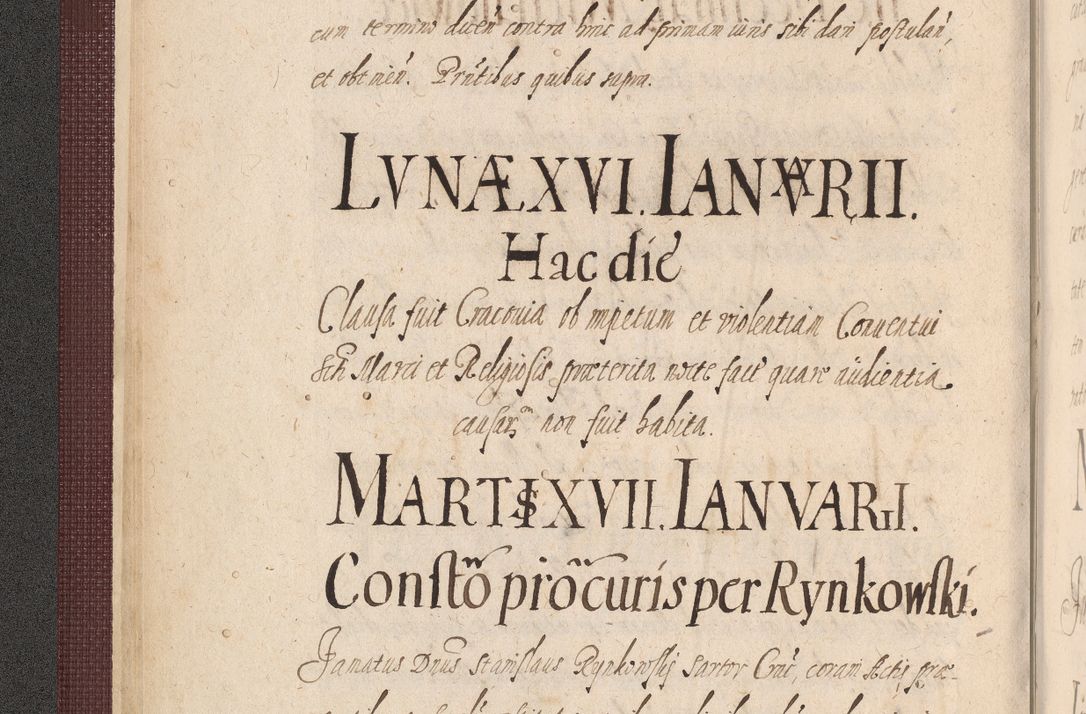 cum termino dicen̄ contra hinc ad primam iuris sibi dari postulan̄,
et obtinen̄. Prn̄tibus quibus supra.
LVNÆ XVI. IANVARII.
Hac die
Clausa fuit Cracouia ob impetum et violentiam Conuentui
Sti Marci et Religiosis præterita nocte fact quare audientia
causarm non fuit habita.
MARTIS XVII. IANVARII.
Constõ prõcuris per Rynkowski.
Famatus Dnus Stanislaus Rynkowski sartor Crac, coram Actis præ-